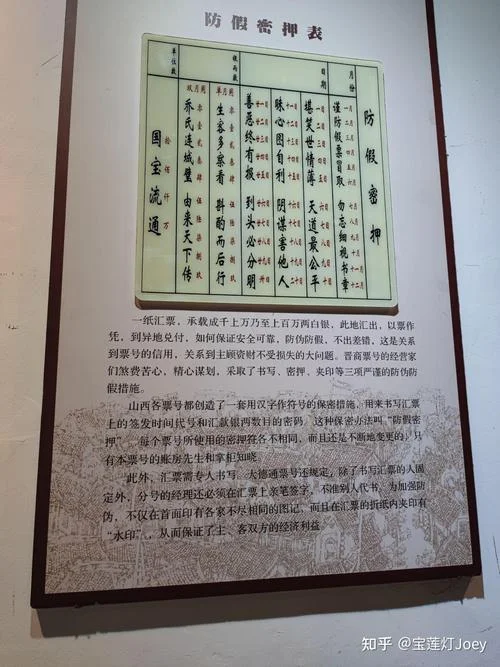 防假密押表
防假密押
月份
谨防假票冒取 勿忘细视书章
日期
堪笑世情薄 天道最公平
昧心图自利 阴谋害他人
善恶终有报 到头必分明
银两数
生客多察看 斟酌而后行
零壹贰叁肆 伍陆柒捌玖
乔氏连城璧 由来天下传
零壹贰叁肆 伍陆柒捌玖
单位数
国宝流通
拾佰仟万
一纸汇票，承载成千上万乃至上百万两白银，此地汇出，以票作
凭，到异地兑付，如何保证安全可靠，防伪防假，不出差错，这是关系
到票号的信用，关系到主顾资财不受损失的大问题。晋商票号的经营家
们煞费苦心，精心谋划，采取了书写、密押、夹印等三项严谨的防伪防
假措施。
山西各票号都创造了一套用汉字作符号的保密措施，用来书写汇票
上的签发时间代号和汇款银两数目的密码。这种保密办法叫“防假密
押”。每个票号所使用的密押符各不相同，而且还是不断地变更的，只
有本票号的账房先生和掌柜知晓。
此外，汇票需专人书写。大德通票号还规定，除了书写汇票的人固
定外，分号的经理还必须在汇票上亲笔签字，不准别人代书。为加强防
伪，不仅在首面印有各家不尽相同的图记，而且在汇票的折纸内夹印有
“水印”，从而保证了主、客双方的经济利益
知乎 @宝莲灯Joey